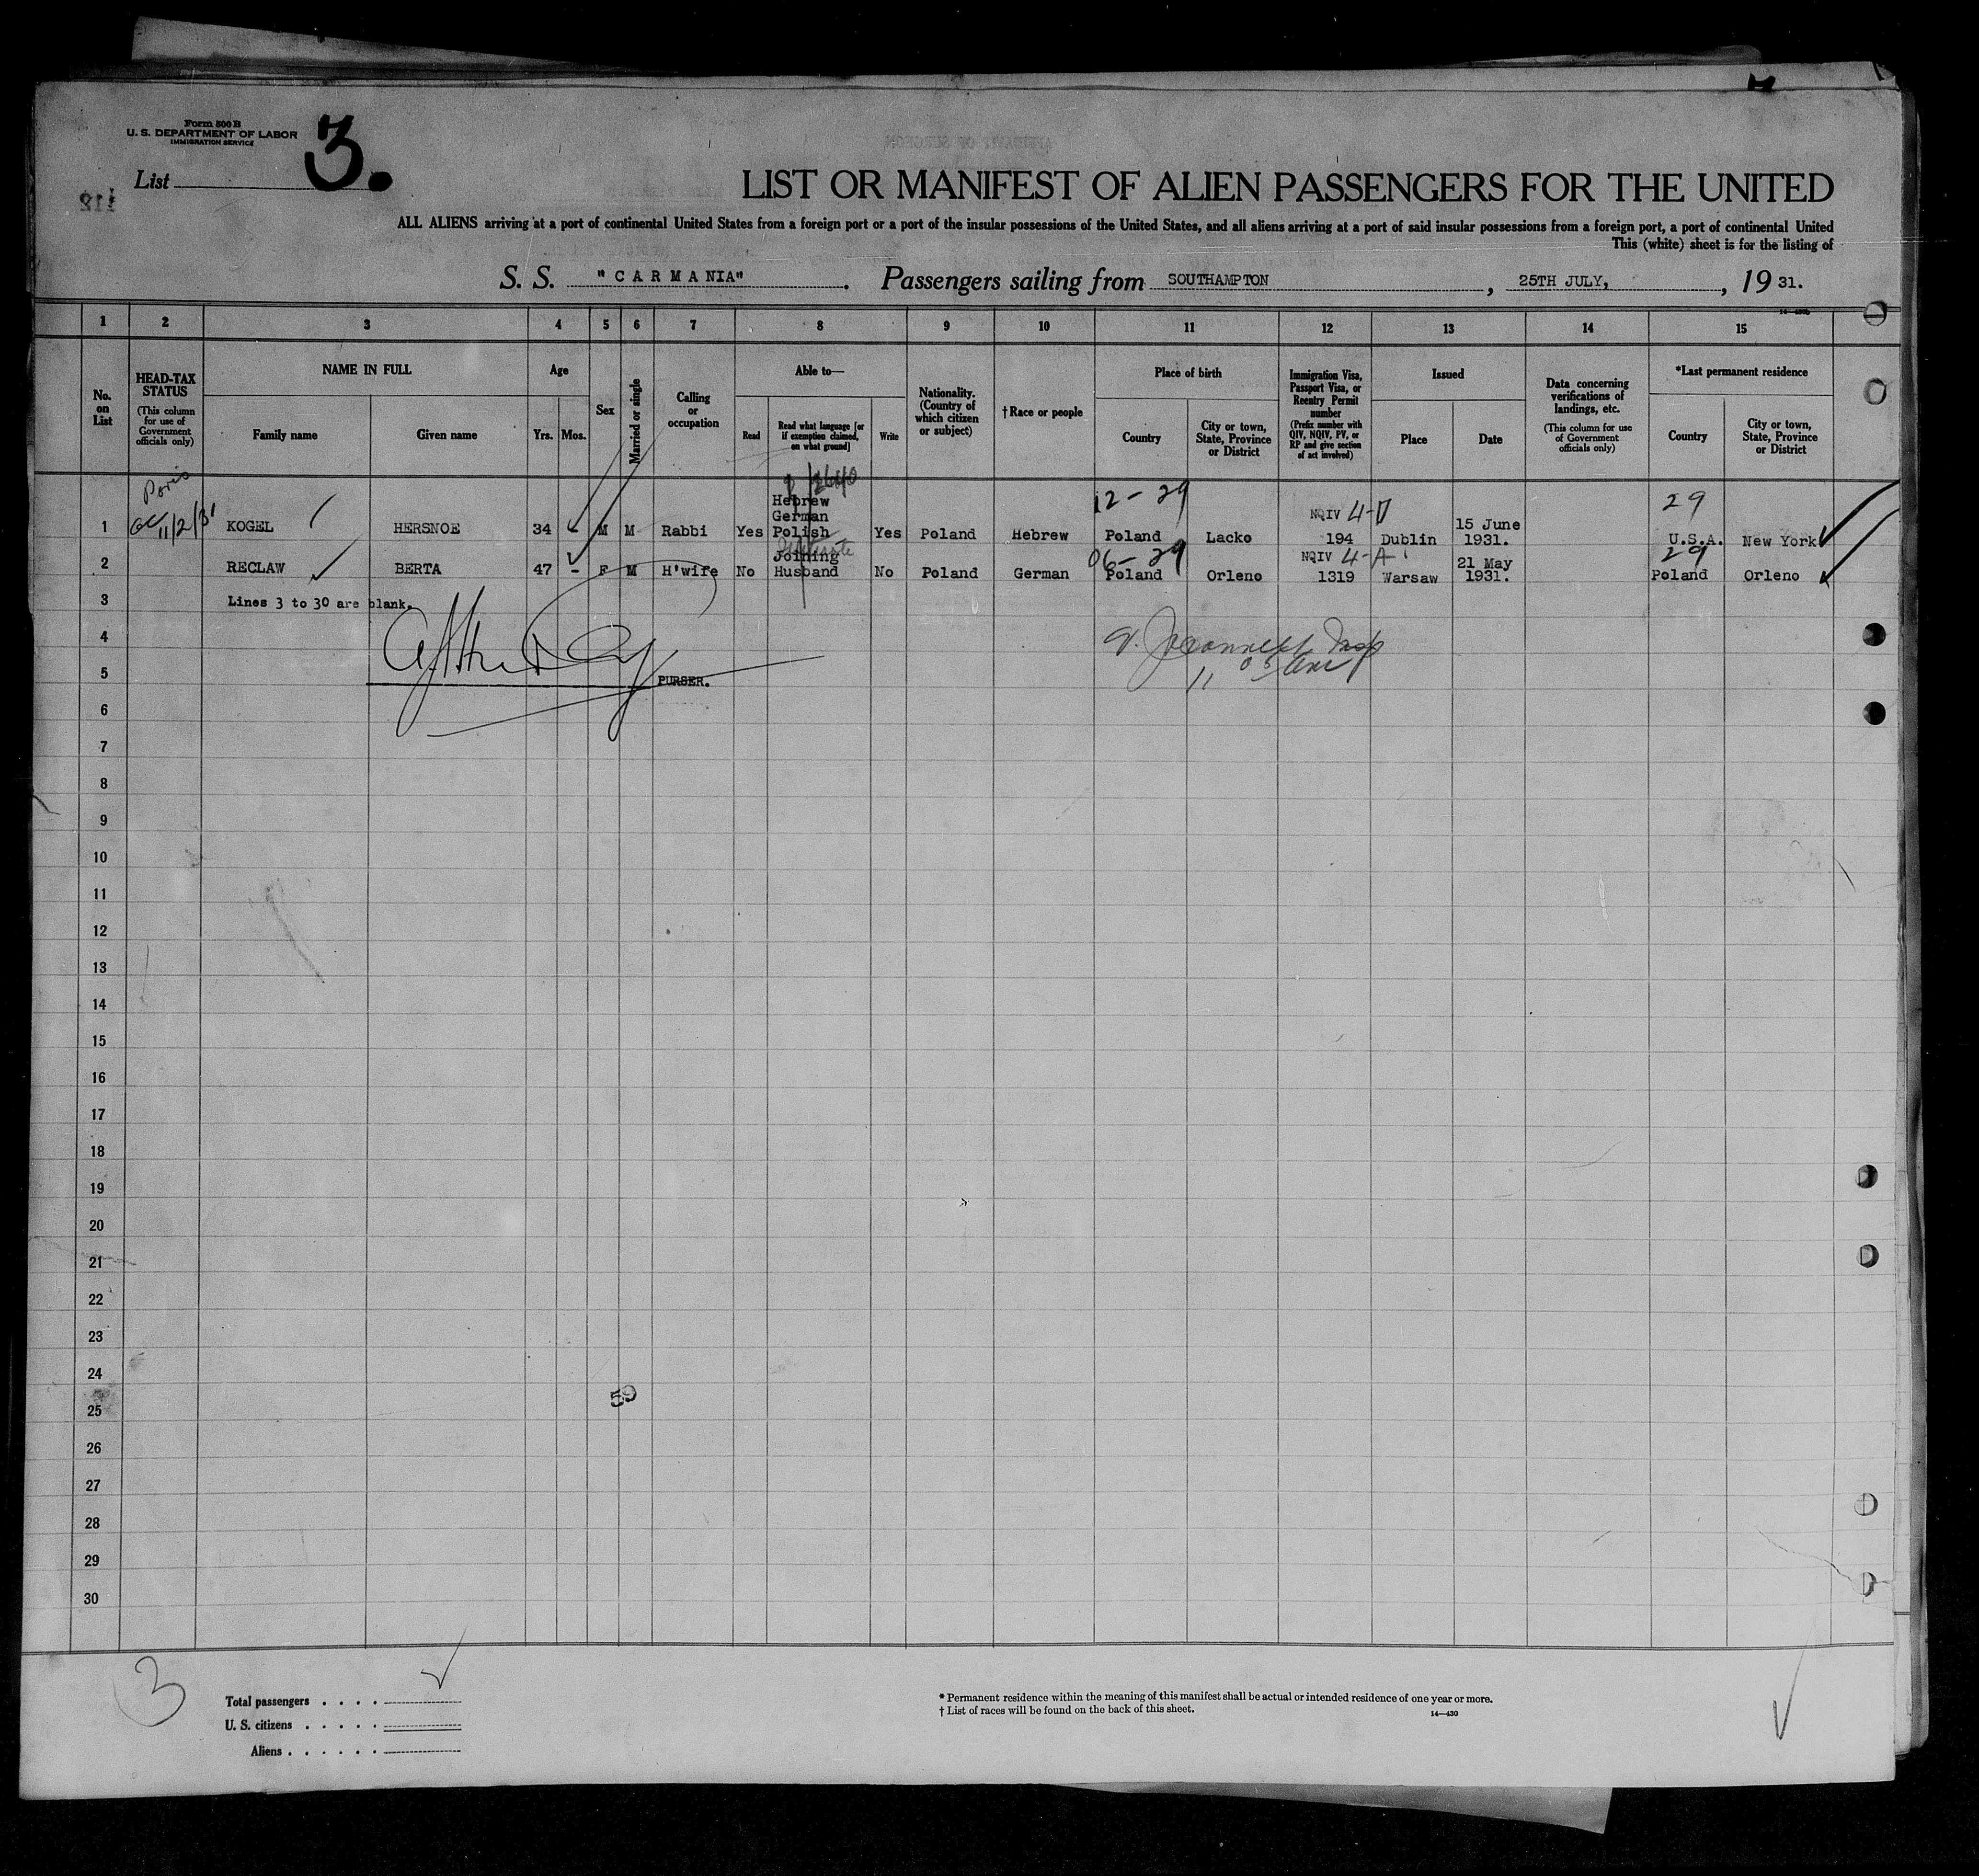 Form 500 B
U. S. DEPARTMENT OF LABOR
IMMIGRATION SERVICE
List 3.
112
LIST OR MANIFEST OF ALIEN PASSENGERS FOR THE UNITED
ALL ALIENS arriving at a port of continental United States from a foreign port or a port of the insular possessions of the United States, and all aliens arriving at a port of said insular possessions from a foreign port, a port of continental United
This (white) sheet is for the listing of
S. S. "CARMANIA". Passengers sailing from SOUTHAMPTON, 25TH JULY, , 19 31.
1 2 3 4 5 6 7 8 9 10 11 12 13 14 15
No. on List
HEAD-TAX STATUS (This column for use of Government officials only)
NAME IN FULL
Family name Given name
Age
Yrs. Mos.
Sex
Married or single
Calling or occupation
Able to—
Read Read what language [or if exemption claimed, on what ground] Write
Nationality. (Country of which citizen or subject)
†Race or people
Place of birth
Country City or town, State, Province or District
Immigration Visa, Passport Visa, or Reentry Permit number (Prefix number with QIV, NQIV, PV, or RP and give section of act involved)
Issued
Place Date
Data concerning verifications of landings, etc. (This column for use of Government officials only)
*Last permanent residence
Country City or town, State, Province or District
Paris
11/2/31
1 KOGEL HERSNOE 34 - M M Rabbi Yes Hebrew German Polish Yes Poland Hebrew 12-29 Poland Lacko NQIV 4-D 194 Dublin 15 June 1931. 29 U.S.A. New York
2 RECLAW BERTA 47 - F M H'wife No Joining Husband No Poland German 06-29 Poland Orleno NQIV 4-A 1319 Warsaw 21 May 1931. 29 Poland Orleno
3 Lines 3 to 30 are blank.
4
5 PURSER.
6
7
8
9
10
11
12
13
14
15
16
17
18
19
20
21
22
23
24
59
25
26
27
28
29
30
3
Total passengers . . . .
U. S. citizens . . . . .
Aliens . . . . . .
* Permanent residence within the meaning of this manifest shall be actual or intended residence of one year or more.
† List of races will be found on the back of this sheet.
14—430